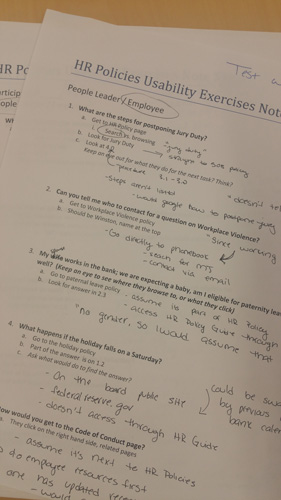 HR Po
rticip
ople
HR Policies Usability Exercises Note
Test w
People Leader / Employee
1. What are the steps for postponing Jury Duty?
a. Get to HR Policy page
i. Search vs. browsing "jury duty"
b. Look for Jury Duty
c. Look at 4.0
Keep an eye out for what they do for the next task? Think?
-Steps aren't listed
- would google how to postpone jury
• doesn't tel
2. Can you tell me who to contact for a question on Workplace Violence?
a. Get to Workplace Violence policy
b. Should be Winston, name at the top
- Since working
-Go directly to phonebook
- search for
- contact via email
3. My wife works in the bank; we are expecting a baby, am I eligible for paternity lea
well? (Keep an eye to see where they browse to, or what they click)
a. Go to paternal leave policy - assume its part of HR Policy
b. Look for answer in 2.3 - access HR Policy Guide through
"no gender, so I would assume that
4. What happens if the holiday falls on a Saturday?
a. Go to the holiday policy
b. Part of the answer is on 1.2
c. Ask what would do to find the answer?
- On the board public site
- federalreserve.gov
- doesn't access through HR Guide
could be
by previous
bank calen
How would you get to the Code of Conduct page?
They click on the right hand side, related pages
- assume it's next to HR Policies
to employee resources first
one has updated recen
- would